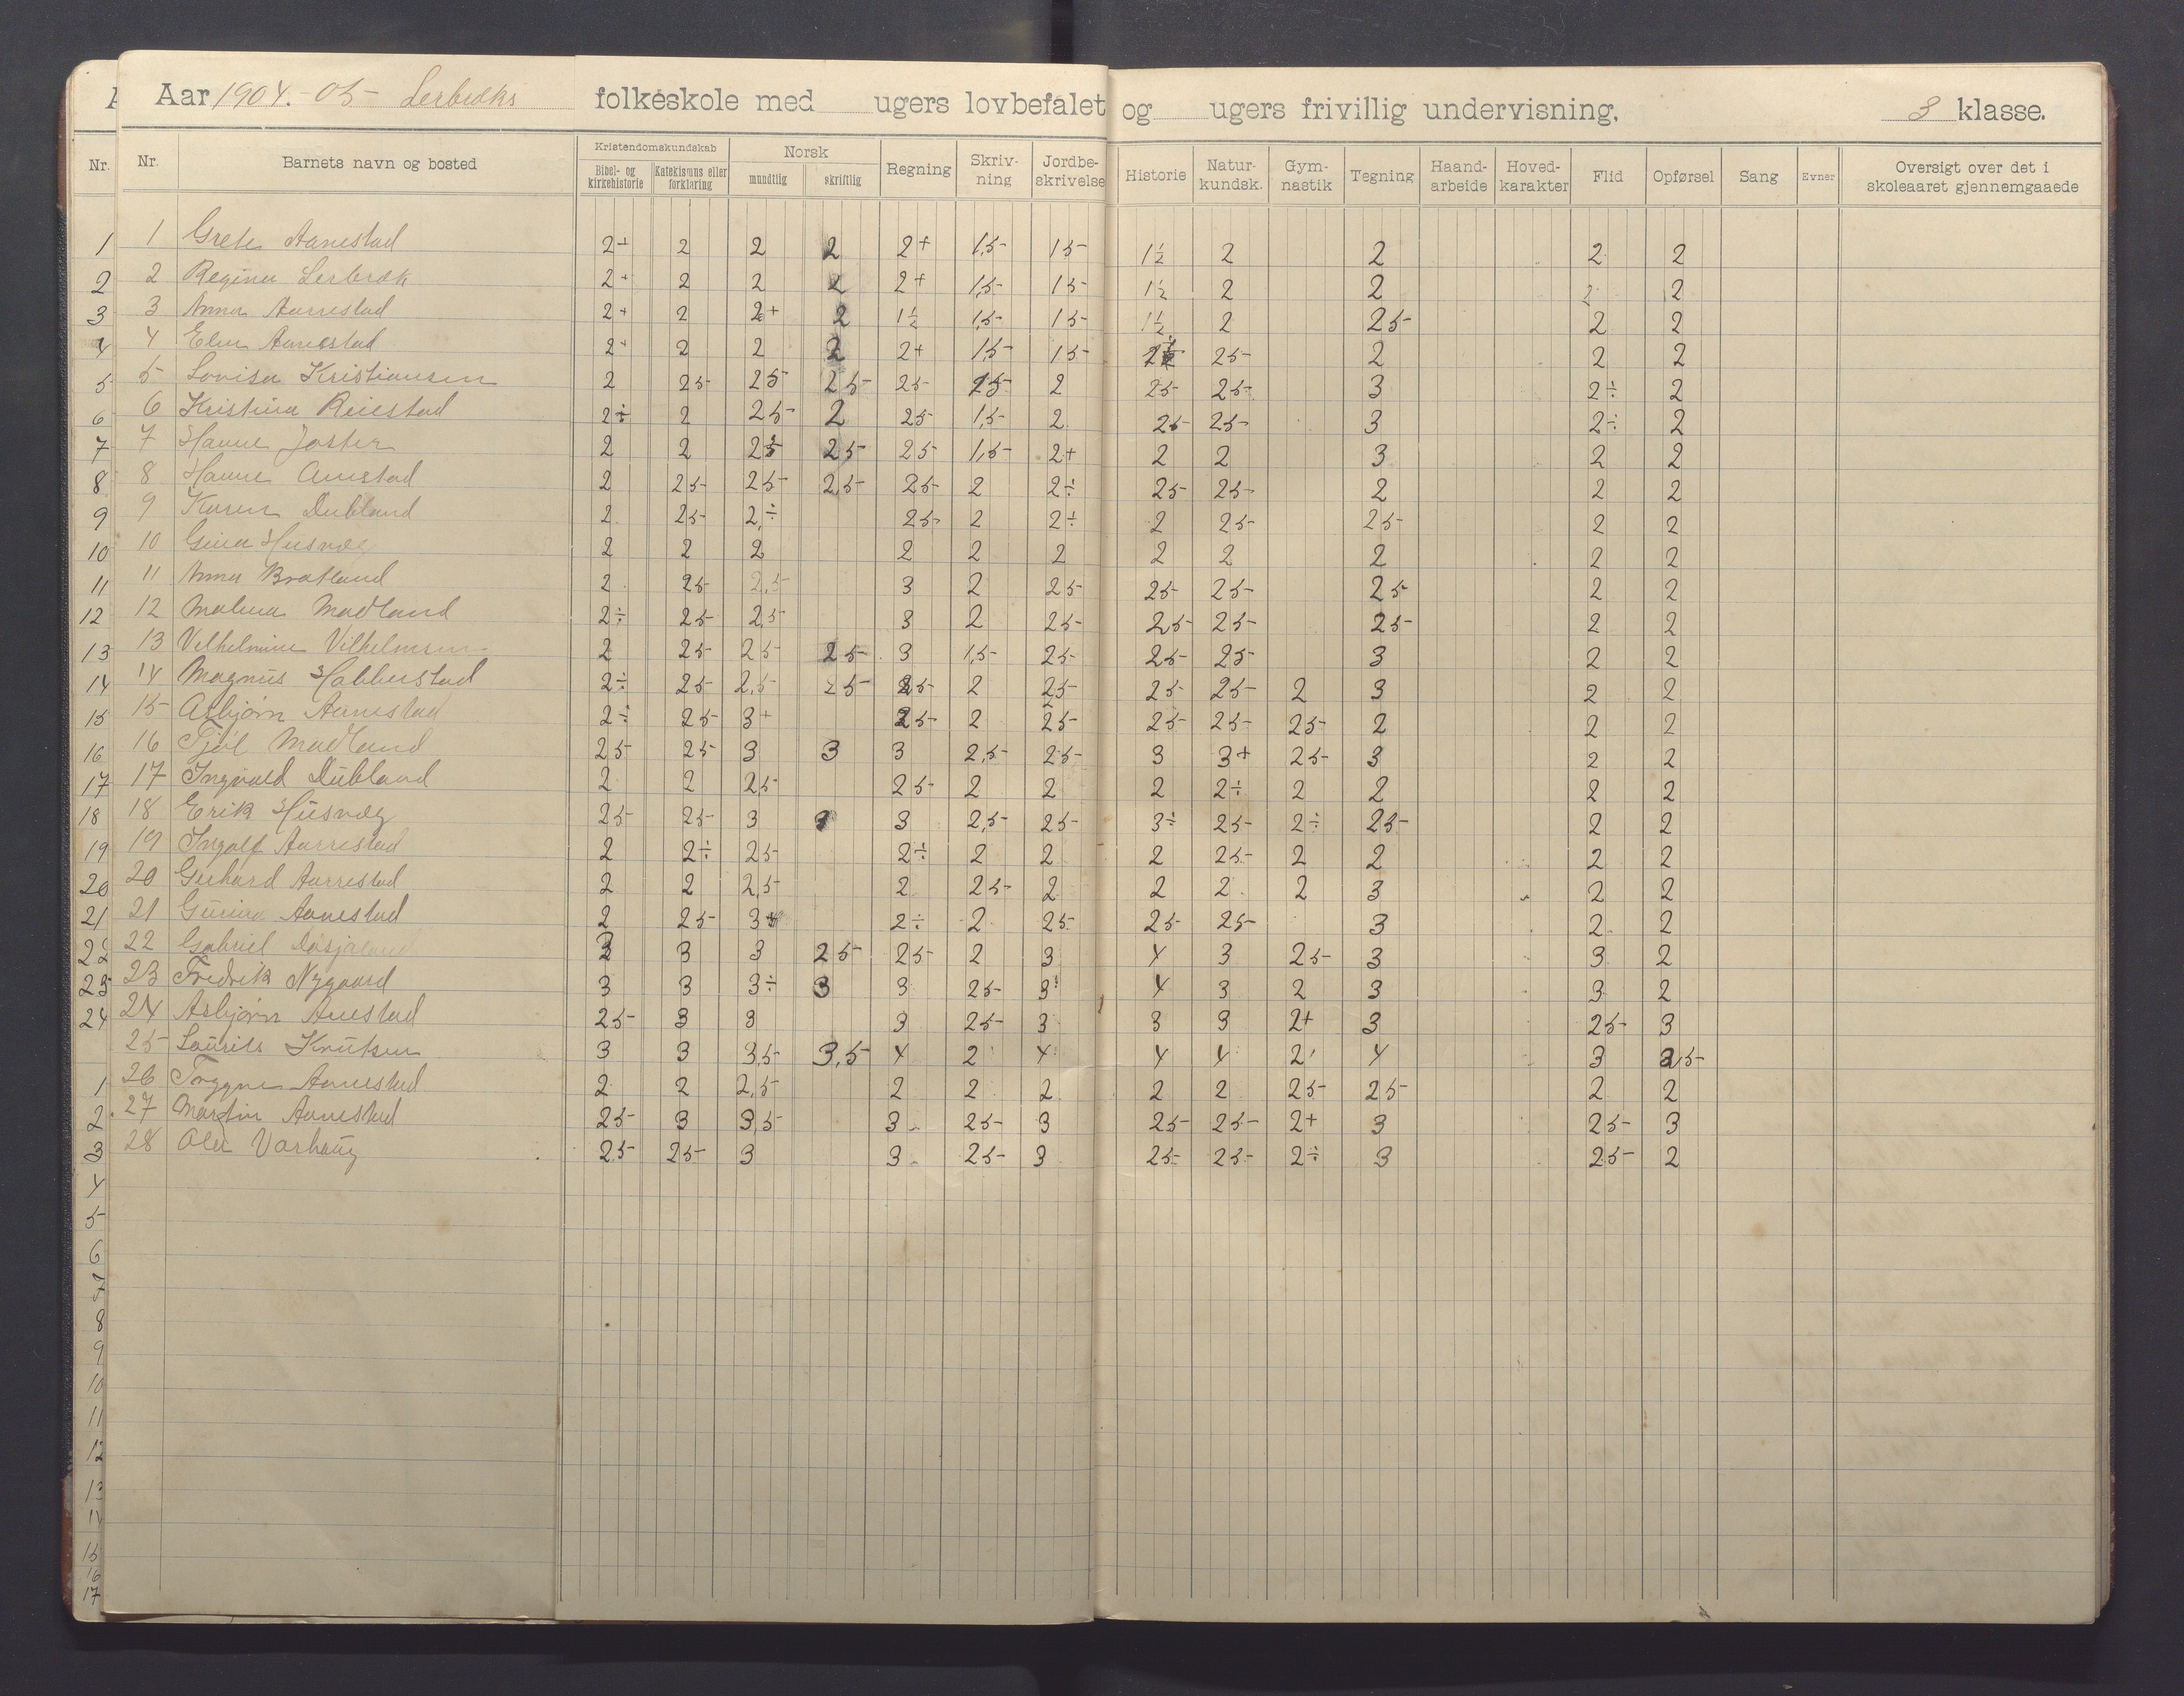 Aar 1904.-05- Lerbræks folkeskole med ugers lovbefalet og ugers frivillig undervisning. 3 klasse.
Nr. Nr. Barnets navn og bosted Kristendomskundskab Norsk Regning Skriv-ning Jordbe-skrivelse Historie Natur-kundsk. Gym-nastik Tegning Haand-arbeide Hoved-karakter Flid Opførsel Sang Evner Oversigt over det i skoleaaret gjennemgaaede
Bibel- og kirkehistorie Katekismus eller forklaring mundtlig skriftlig
1 1 Grete Aanestad 2+ 2 2 2 2+ 1,5- 15- 1½ 2 2 2 2
2 2 Regina Lerbræk 2+ 2 2 2 2+ 1,5- 15- 1½ 2 2 2 2
3 3 Anna Aarrestad 2+ 2 2+ 2 1½ 1,5- 15- 1½ 2 25- 2 2
4 4 Aanestad 2+ 2 2 2 2+ 1,5- 15- 25- 2 2 2
5 5- Lovisa Kristiansen 2 25- 25- 25- 25- 25- 2 25- 25- 3 2÷ 2
6 6 Kristina 2÷ 2 25- 2 25- 1,5- 2 25- 25- 3 2÷ 2
7 7 Hanne Joster 2 2 25 25- 25- 1,5- 2+ 2 2 3 2 2
8 8 Hanne 2 25- 25- 2,5- 25- 2 2÷ 25- 25- 2 2 2
9 9 Karen Dubland 2 25- 2,÷ 25- 2 2÷ 2 25- 25- 2 2
10 10 Gina 2 2 2 2 2 2 2 2 2 2 2
11 11 Anna Bratland 2 25- 2,5- 3 2 25- 25- 25- 25- 2 2
12 12 Malena Madland 2÷ 25- 2,5- 3 2 25- 25- 25- 25- 2 2
13 13 Vilhelmine Vilhelmsen 2 25- 25- 25- 3 1,5- 25- 25- 25- 3 2 2
14 14 Magnus Habberstad 2÷ 25- 2,5- 25- 25- 2 25- 25- 25- 2 3 2 2
15 15- Asbjørn Aanestad 2÷ 25- 3+ 25- 2 25- 25- 25- 25- 2 2 2
16 16 Madland 25- 25- 3 3 3 2,5- 25- 3 3+ 25- 3 2 2
17 17 Ingvald Dubland 2 2 2,5- 25- 2 2 2 2÷ 2 2 2 2
18 18 Erik 25- 25- 3 3 2,5- 25- 3÷ 25- 2÷ 25- 2 2
19 19 Ingolf Aarrestad 2 2÷ 25- 2÷ 2 2 2 25- 2 2 2 2
20 20 Gerhard Aarrestad 2 2 2,5- 2 25- 2 2 2 2 3 2 2
21 21 Aanestad 2 25- 3+ 2÷ 2 25- 25- 25- 3 2 2
22 22 Gabriel 3 3 3 25- 25- 2 3 4 3 25- 3 3 2
23 23 Fredrik Nygaard 3 3 3÷ 3 3 25- 3 4 3 2 3 3 2
24 24 Asbjørn 25- 3 3 3 25- 3 3 3 2+ 3 25- 3
25- Laurits Knutsen 3 3 3,5- 3,5- 4 2 4 4 4 2 4 3 3,5-
1 26 Aanestad 2 2 2,5- 2 2 2 2 2 25- 25- 2 2
2 27 Martin Aanestad 25- 3 3,5- 3 25- 3 25- 25- 2+ 3 25- 3
3 28 Varhaug 25- 25- 3 3 25- 3 25- 25- 2÷ 3 25- 2
4
5
6
7
8
9
10
11
12
13
14
15
16
17